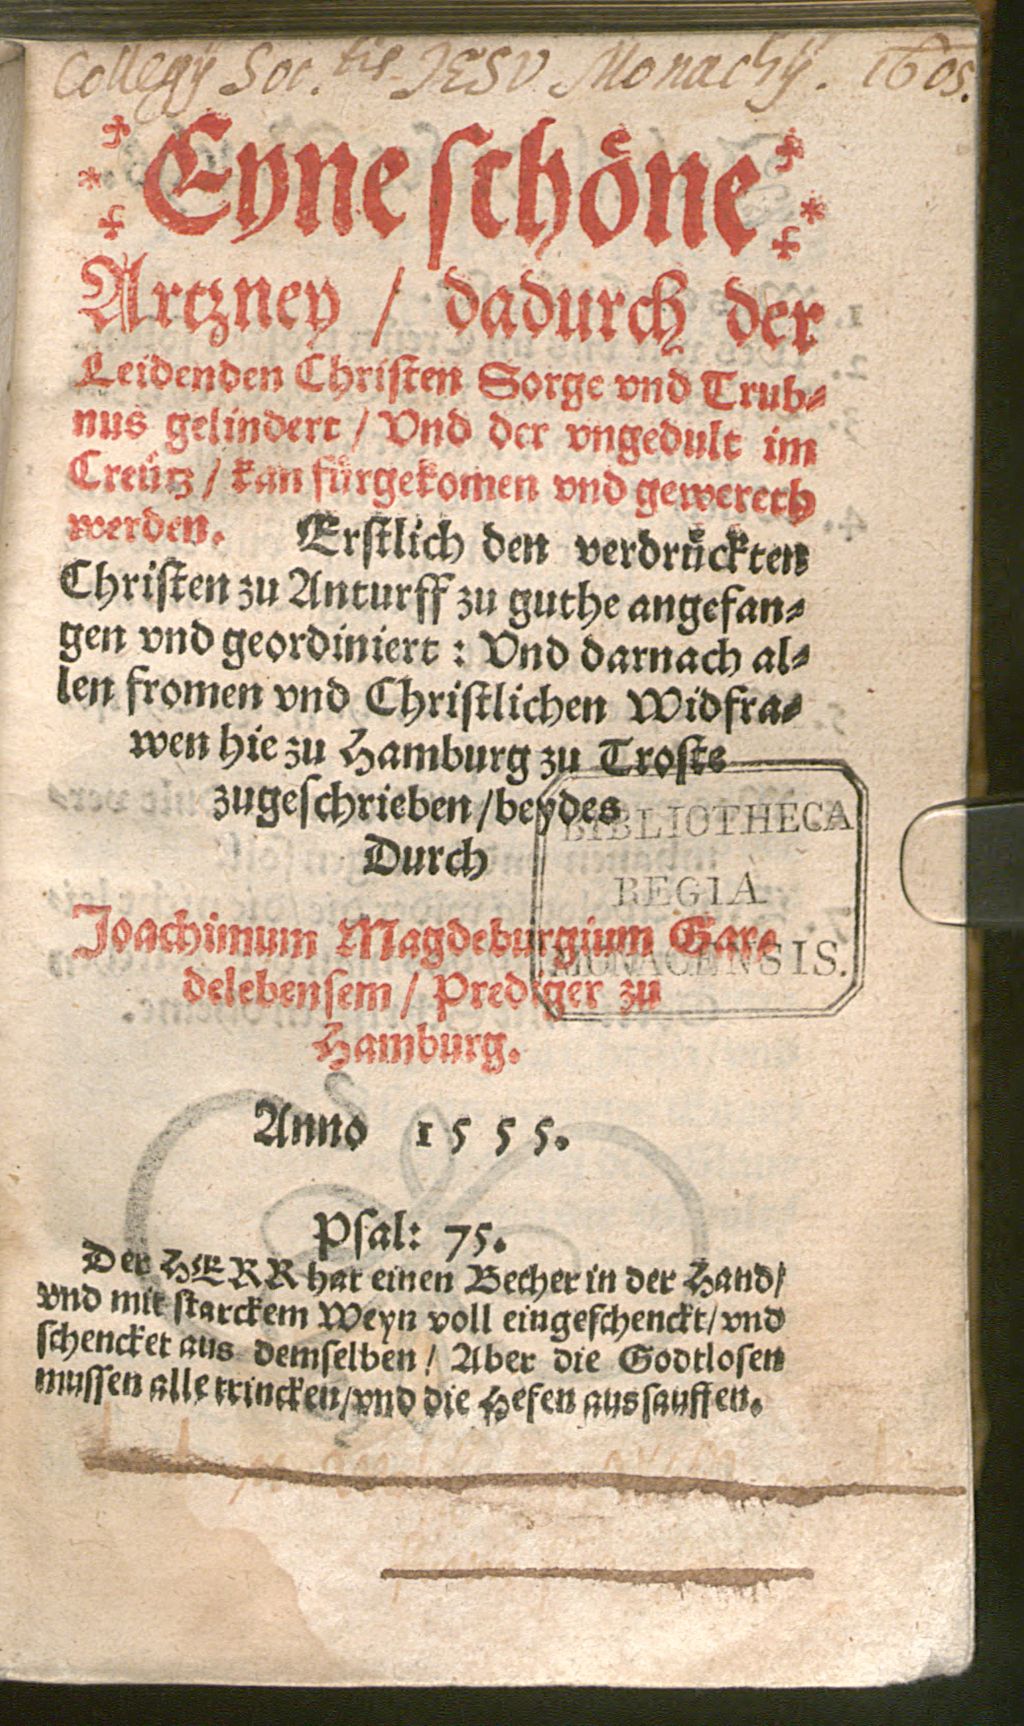 Collegij Soc.tis JESV Monachij. 1605.
Eyne schöne
Artzney / dadurch der
Leidenden Christen Sorge vnd Trub⸗
nus gelindert / Vnd der vngedult im
Creütz / kan fürgekomen vnd gewerech
werden. Erstlich den verdrückten
Christen zu Anturff zu guthe angefan⸗
gen vnd geordiniert : Vnd darnach al⸗
len fromen vnd Christlichen Widfra⸗
wen hie zu Hamburg zu Troste
zugeschrieben / beydes
Durch
Joachimum Magdeburgium Gar⸗
delebensem / Prediger zu
Hamburg.
BIBLIOTHECA
REGIA
MONACENSIS.
Anno 1555.
Psal: 75.
Der HERR hat einen Becher in der Hand/
vnd mit starckem Weyn voll eingeschenckt/ vnd
schencket aus demselben / Aber die Godtlosen
mussen alle trincken/ vnd die Hefen aussauffen.